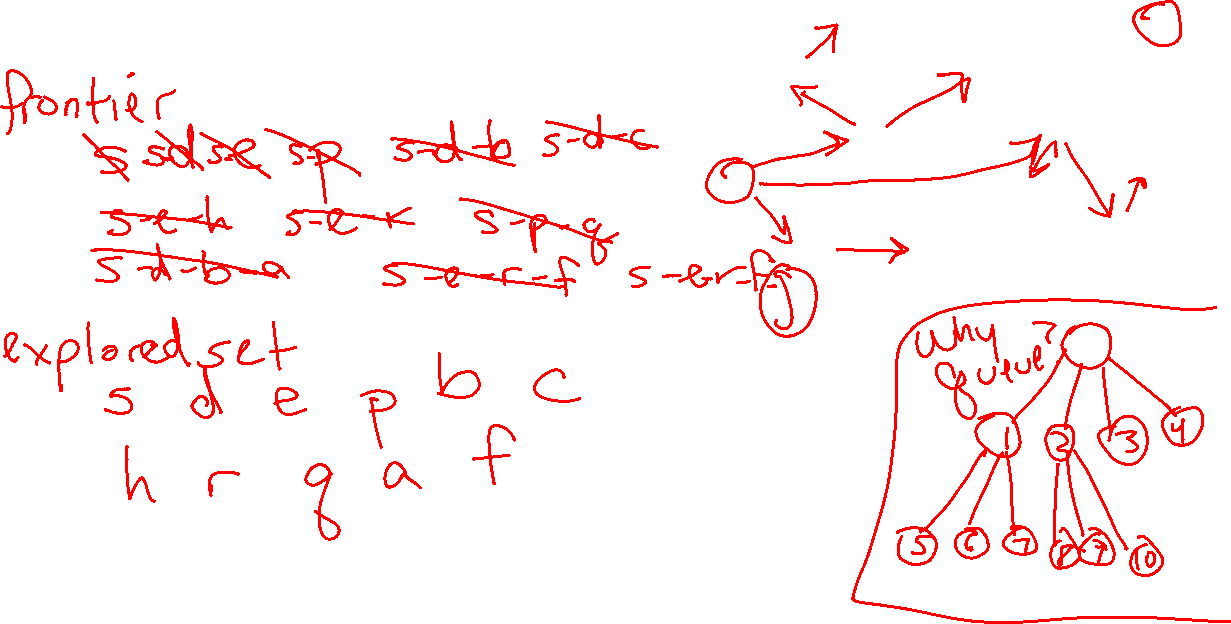 frontier
s s-d s-e s-p s-d-b s-d-c
s-e-h s-e-r s-p-q
s-d-b-a s-e-r-f s-e-r-f-g
explored set
s d e p b c
h r q a f
Why
queue?
1 2 3 4
5 6 7 8 9 10